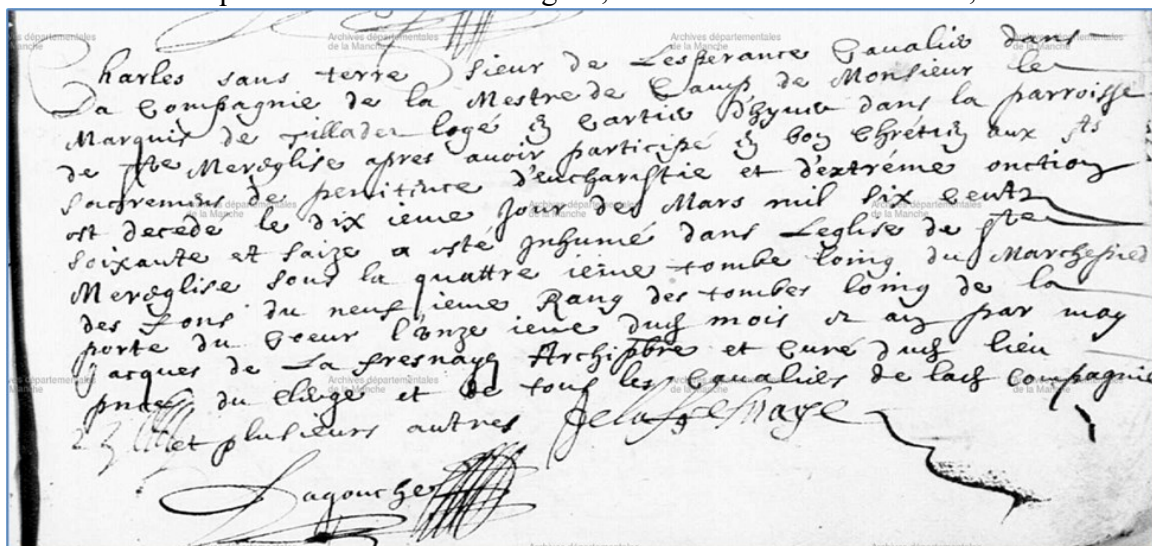 Charles sans terre sieur de Lesperance Cavalie dans
La Compagnie de la Mestre de Camp de Monsieur le
Marquis de Tilladet logé en Cartie d'hyver dans la parroisse
de Ste Mereglise apres avoir participé en bon Chrétien aux Sts
Sacremens de penitence d'eucharistie et d'extréme onction
est decedé le dix ieme Jour de Mars mil six cents
soixante et saize a esté Inhumé dans Leglise de Ste
Mereglise sous la quattre ieme tombe loing du Marchepied
des fons du neuf ieme Rang des tombes loing de la
porte du Coeur l'onze ieme dud mois et an par moy
Jacques de La fresnaye Archipbre et Curé dud lieu
pnce du Clege et de tous les Cavaliers de lad Compagnie
et plusieurs autres Delafresnaye
Lagouche
Archives départementales
de la Manche